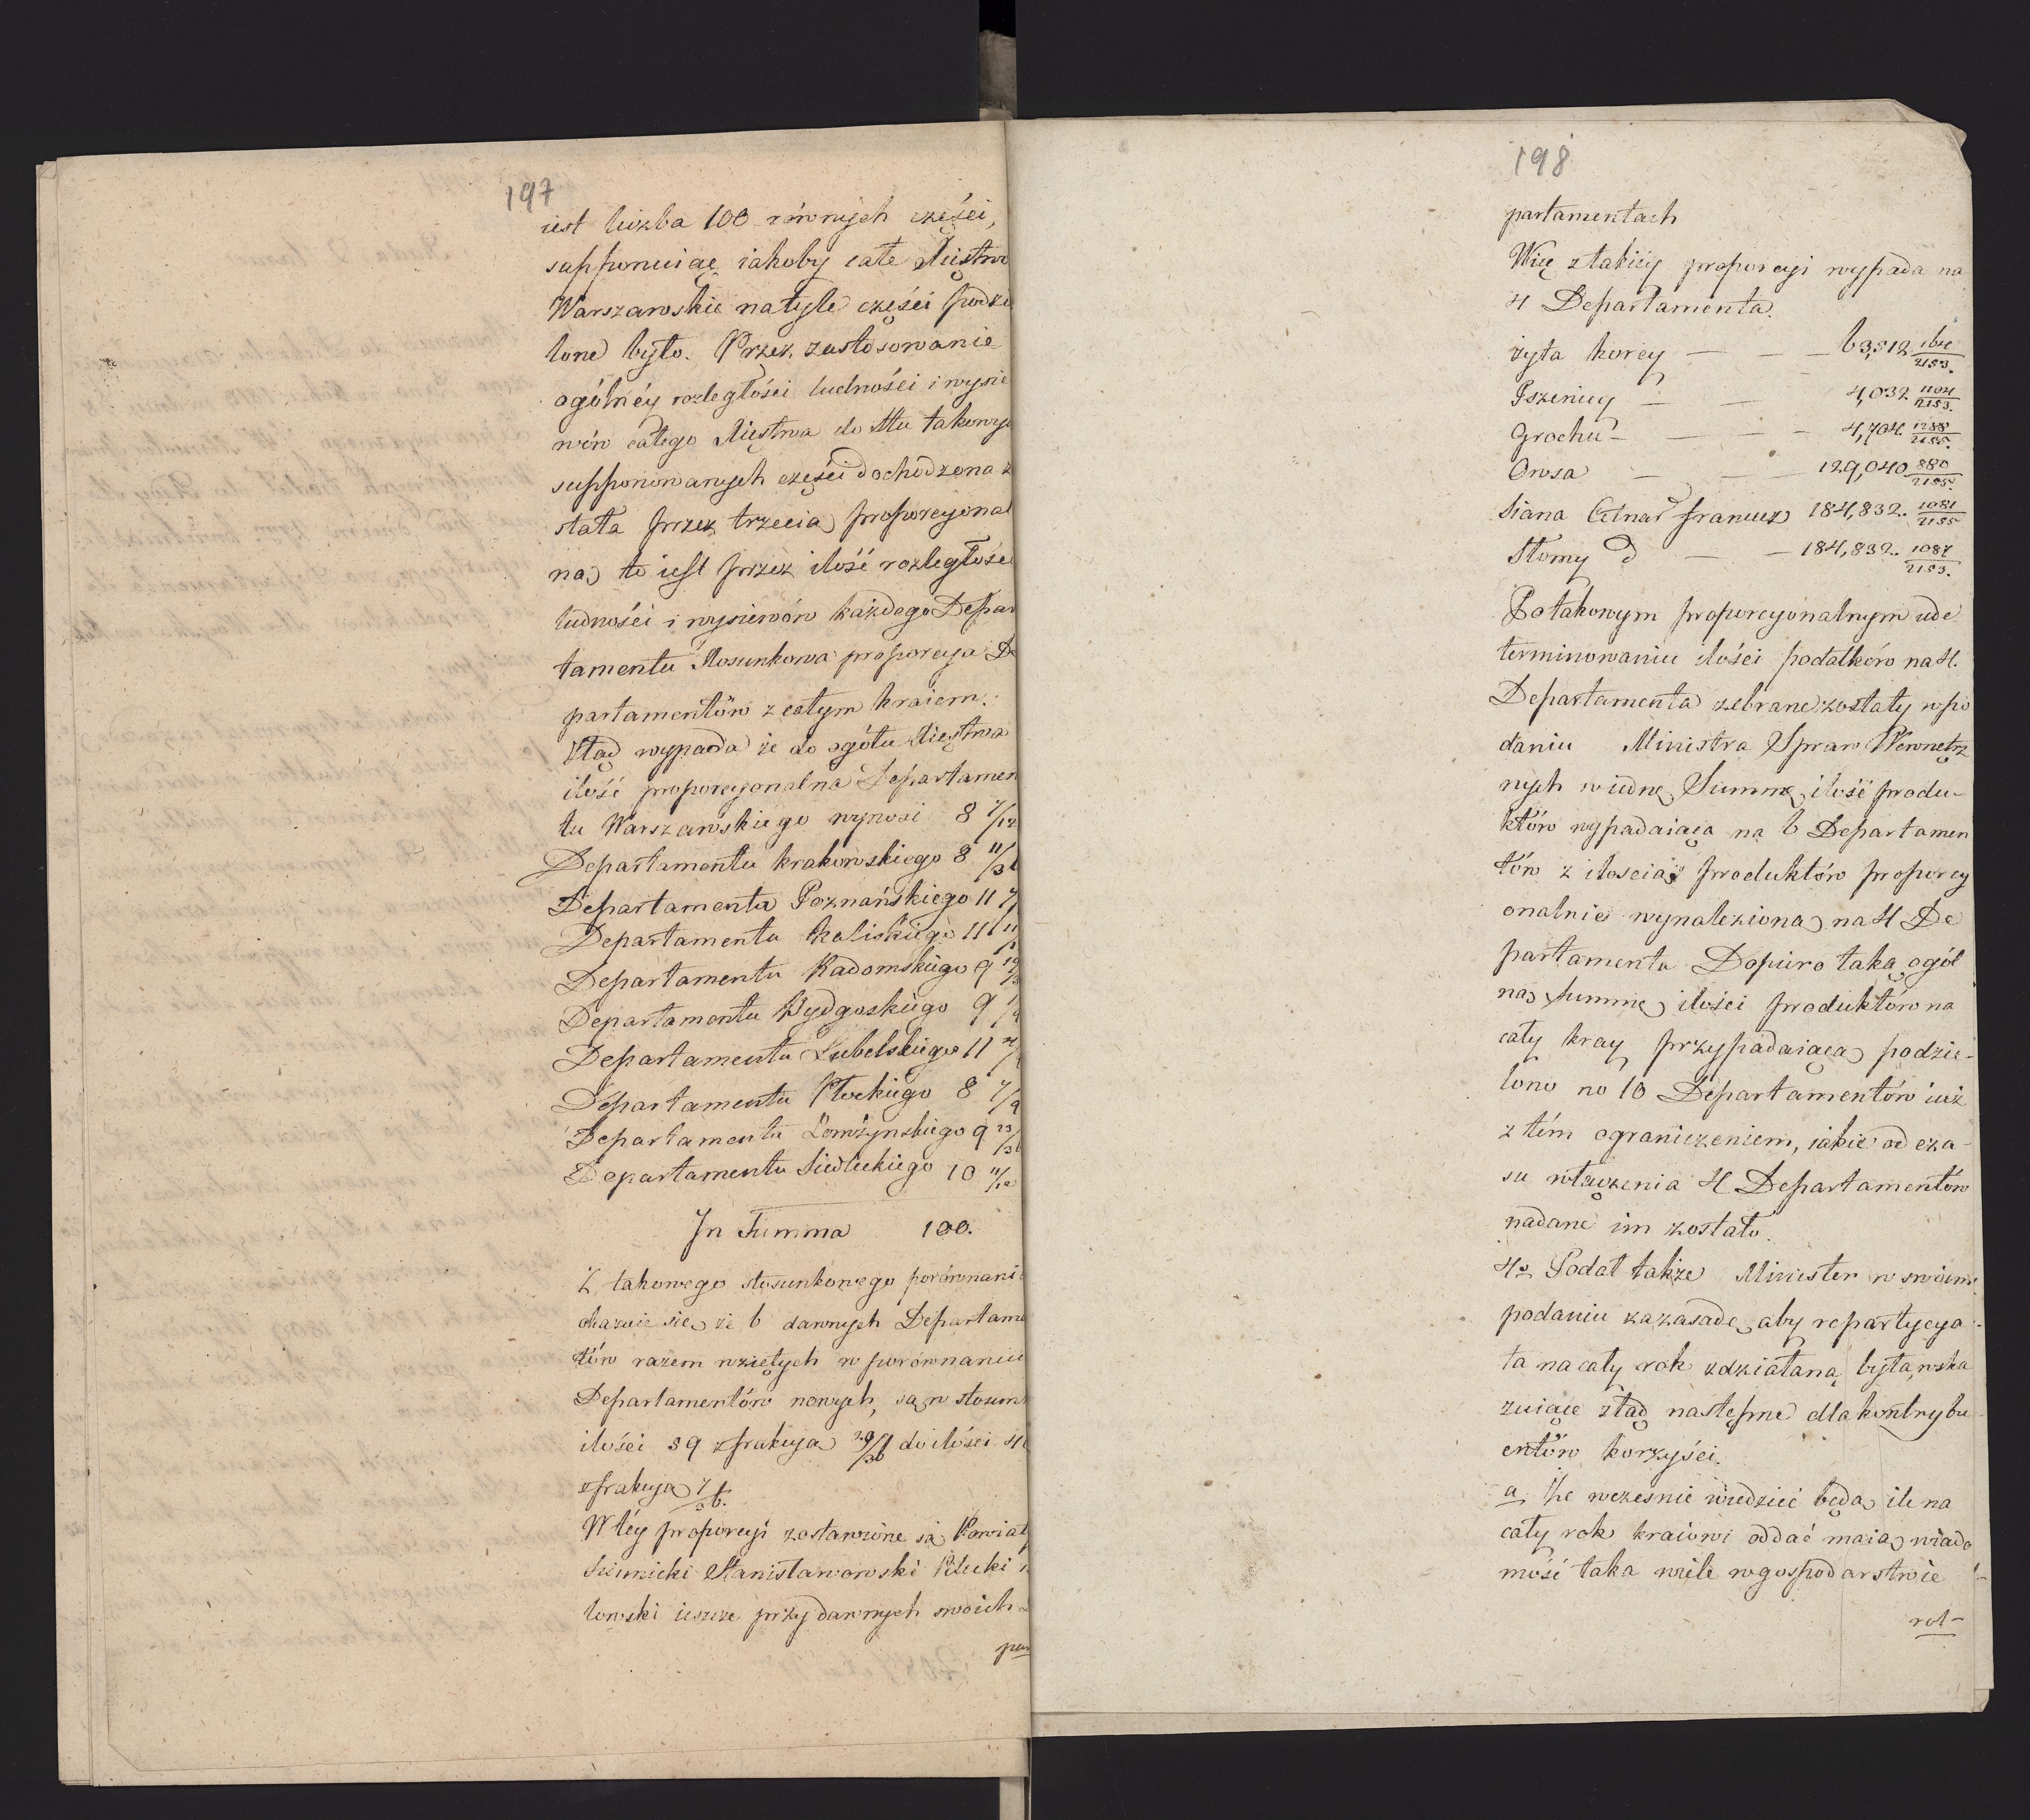 197
iest liczba 100 równych części,
supponuiąc iakoby całe Xięstwo
Warszawskie natyle części podzie
lone było. Przez zastosowanie
ogólnéy rozległości ludności i wysie
wów całego Xięstwa do Stu takowych
supponowanych części dochodzona z
stała przez trzecią proporcyonal
ną to iest przez ilość rozległości
ludności i wysiewów każdego Depar
tamentu Stosunkowa proporcya De
partamentów z całym kraiem.
Ztąd wypada że do ogółu Xięstwa
ilość proporcyonalna Departamen
tu Warszawskiego wynosi 8 7/12
Departamentu krakowskiego 8 11/36
Departamentu Poznańskiego 11 7/
Departamentu Kaliskiego 11 11/
Departamentu Radomskiego 9 19/3
Departamentu Bydgoskiego 9 1/
Departamentu Lubelskiego 11
Departamentu Płockiego 8 7/9
Departamentu Łomżynskiego 9 23/36
Departamentu Siedleckiego 10 11/12
In Summa 100.
Z takowego stosunkowego porównani
okazuie się, że 6 dawnych Departame
tów razem wziętych w porównaniu
Departamentów nowych, są w stosun
ilości 59 z frakcyą 29/36 do ilości 4
z frakcyą 7/36.
W téy proporcyi zostawione są Powiaty
Siennicki Stanisławowski
towski ieszcze przy dawnych swoich
par
198
partamentach
Więc z takiéy proporcyi wypada na
4 Departamenta.
żyta korcy — — — 63,512
2153.
Pszenicy — — 4,032 1104
2153.
Grochu — — — — 4,704 1288
2153.
Owsa — — — 129,040 880
2153.
Siana Cetnar francuz 184,832. 1081
2153
Słomy d — — 184,832. 1087
2153.
Po takowym proporcyonalnym ude
terminowaniu ilości podatków na 4.
Departamenta zebrane zostały w po
daniu Ministra Spraw Wewnętrz
nych w iedne Summę ilość produ-
któw wypadaiąca na 6 Departamen
tów z ilością produktów proporcy
onalnie wynalezioną na 4 De
partamenta Dopiero taką ogól
ną summę ilości produktów na
cały kray przypadaiącą podzie-
lono na 10 Departamentów iuż
z tém ograniczeniem, iakie od cza-
su włączenia 4 Departamentów
nadane im zostało.
4o Podał także Minister w swoim
podaniu za zasadę, aby repartycya
ta na cały rok zdziałaną była, wska
zuiąc ztąd nastepne dla kontrybu
entów korzyści.
a, Że wczesnie wiedzieć będą, ile na
cały rok kraiowi oddać maią, wiado
mość taka wiele w gospodarstwie
rol-